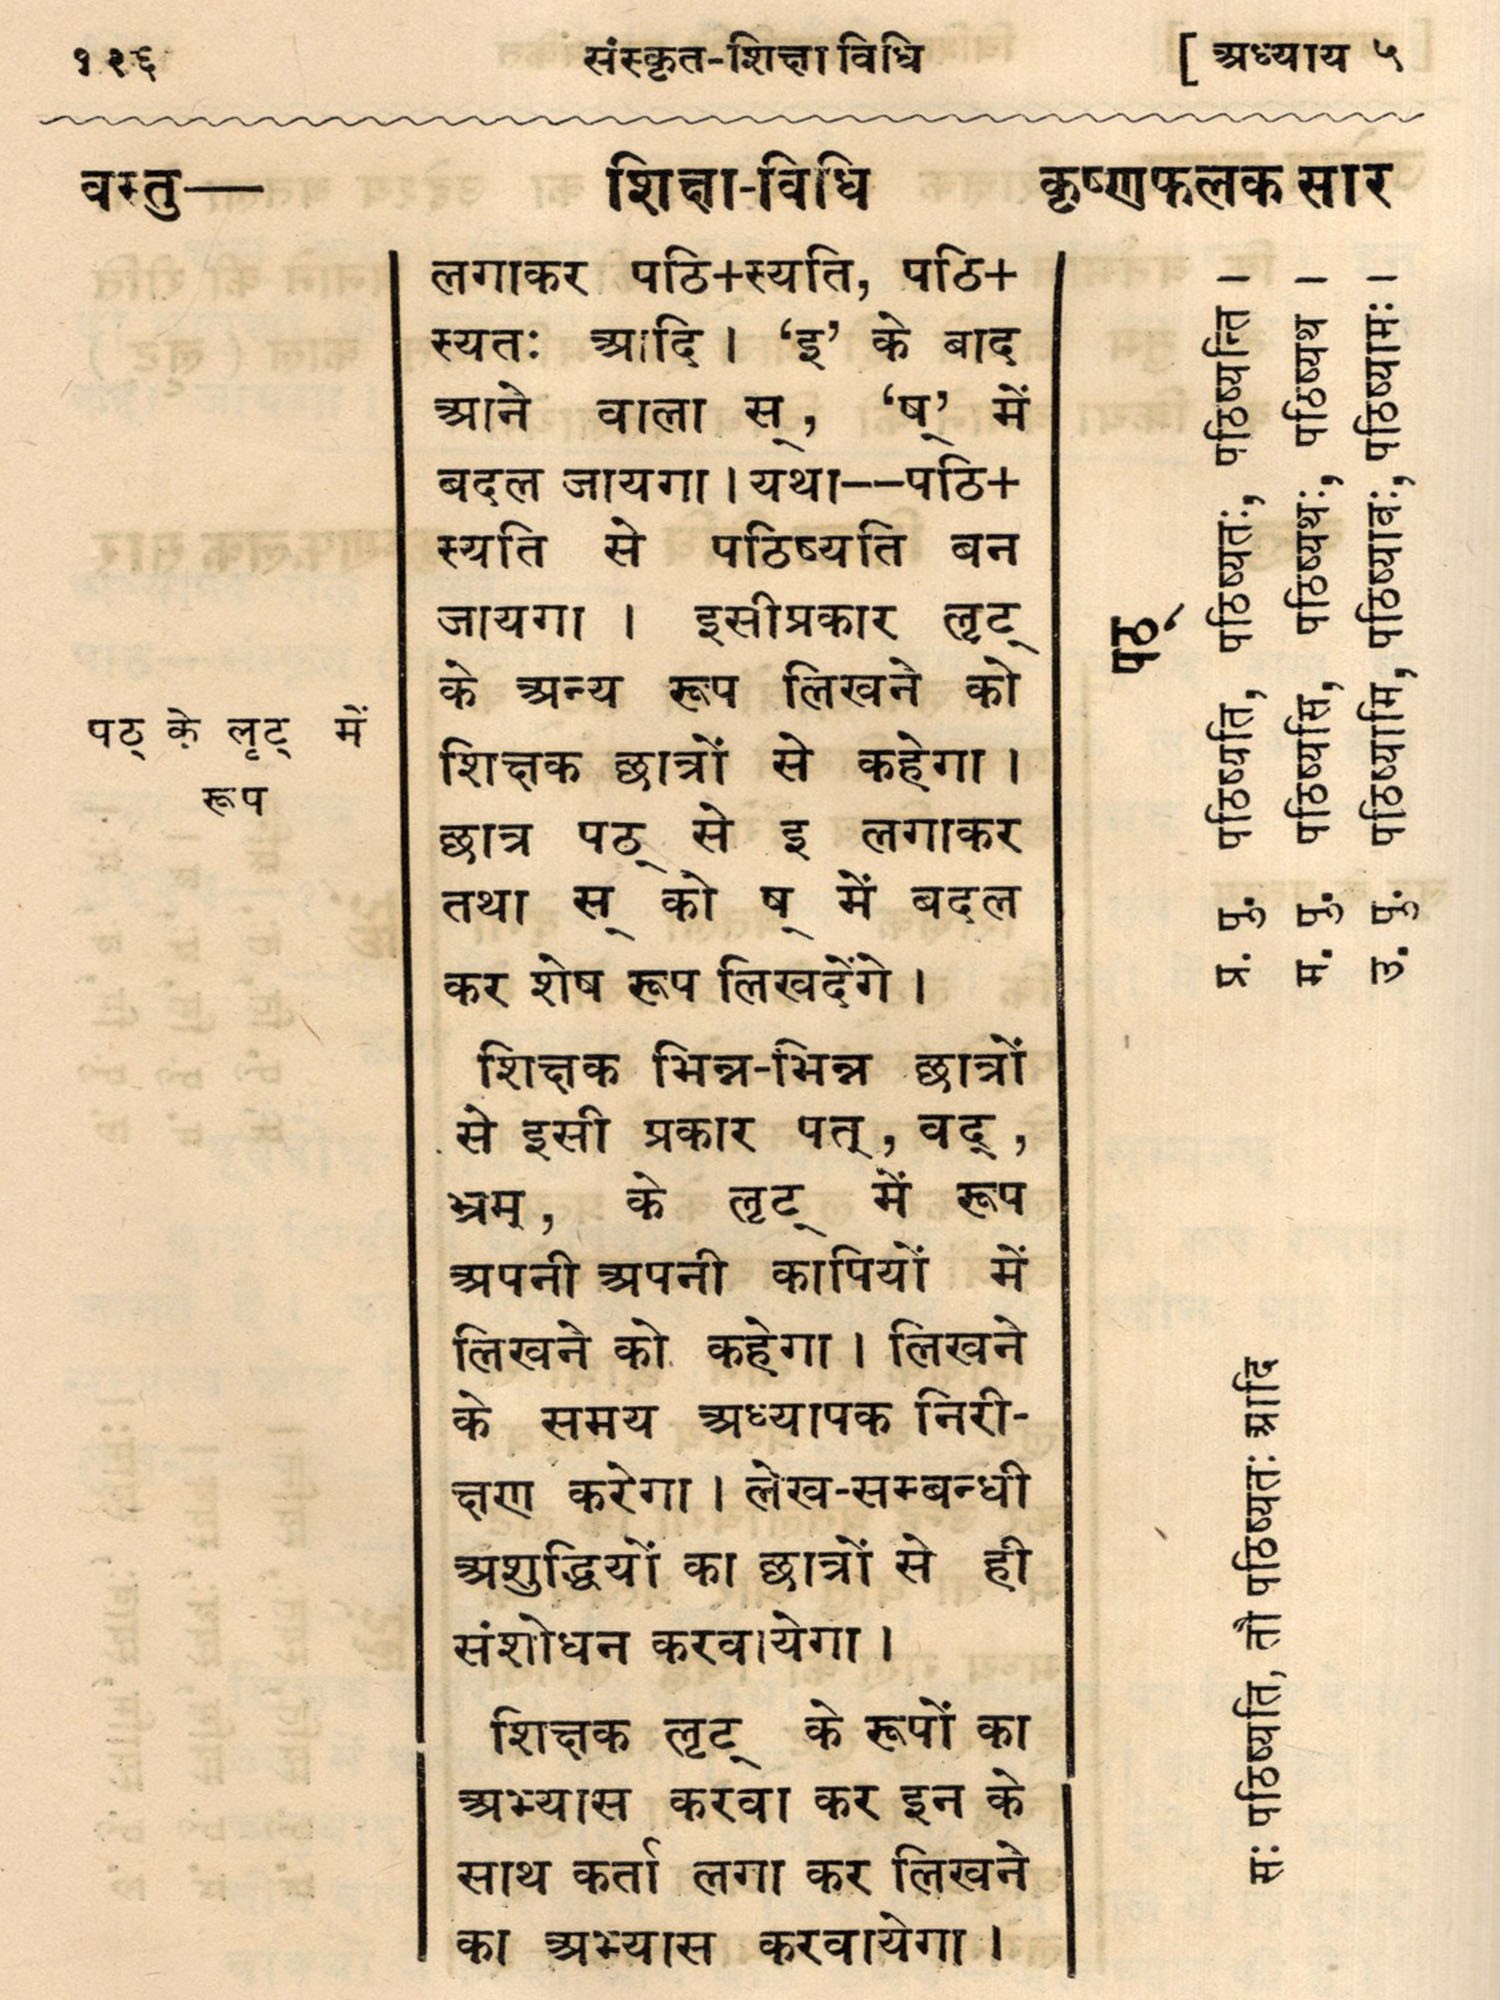 १२६ संस्कृत-शिक्षा विधि [ अध्याय ५
वस्तु— शिक्षा-विधि कृष्णफलक सार
पठ् के लृट् में
रूप
लगाकर पठि+स्यति, पठि+
स्यतः आदि। ‘इ’ के बाद
आने वाला स्, ‘ष्’ में
बदल जायगा। यथा——पठि+
स्यति से पठिष्यति बन
जायगा। इसीप्रकार लृट्
के अन्य रूप लिखने को
शिक्षक छात्रों से कहेगा।
छात्र पठ् से इ लगाकर
तथा स् को ष् में बदल
कर शेष रूप लिखदेंगे।
शिक्षक भिन्न-भिन्न छात्रों
से इसी प्रकार पत्, वद्,
भ्रम्, के लृट् में रूप
अपनी अपनी कापियों में
लिखने को कहेगा। लिखने
के समय अध्यापक निरी-
क्षण करेगा। लेख-सम्बन्धी
अशुद्धियों का छात्रों से ही
संशोधन करवायेगा।
शिक्षक लृट् के रूपों का
अभ्यास करवा कर इन के
साथ कर्ता लगा कर लिखने
का अभ्यास करवायेगा।
पठ्
प्र. पु. पठिष्यति, पठिष्यतः, पठिष्यन्ति।
म. पु. पठिष्यसि, पठिष्यथः, पठिष्यथ।
उ. पु. पठिष्यामि, पठिष्यावः, पठिष्यामः।
सः पठिष्यति, तौ पठिष्यतः आदि